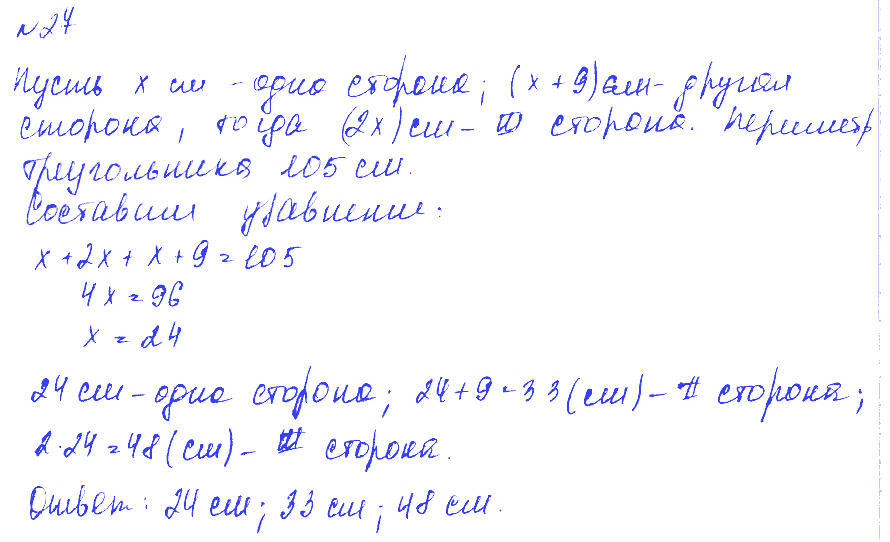 №27
Пусть x см - одна сторона; (x+9)см - другая
сторона, тогда (2x)см - III сторона. Периметр
треугольника 105 см.
Составим уравнение:
x+2x+x+9=105
4x=96
x=24
24 см - одна сторона; 24+9=33(см) - II сторона;
2·24=48(см) - III сторона.
Ответ: 24 см; 33 см; 48 см.